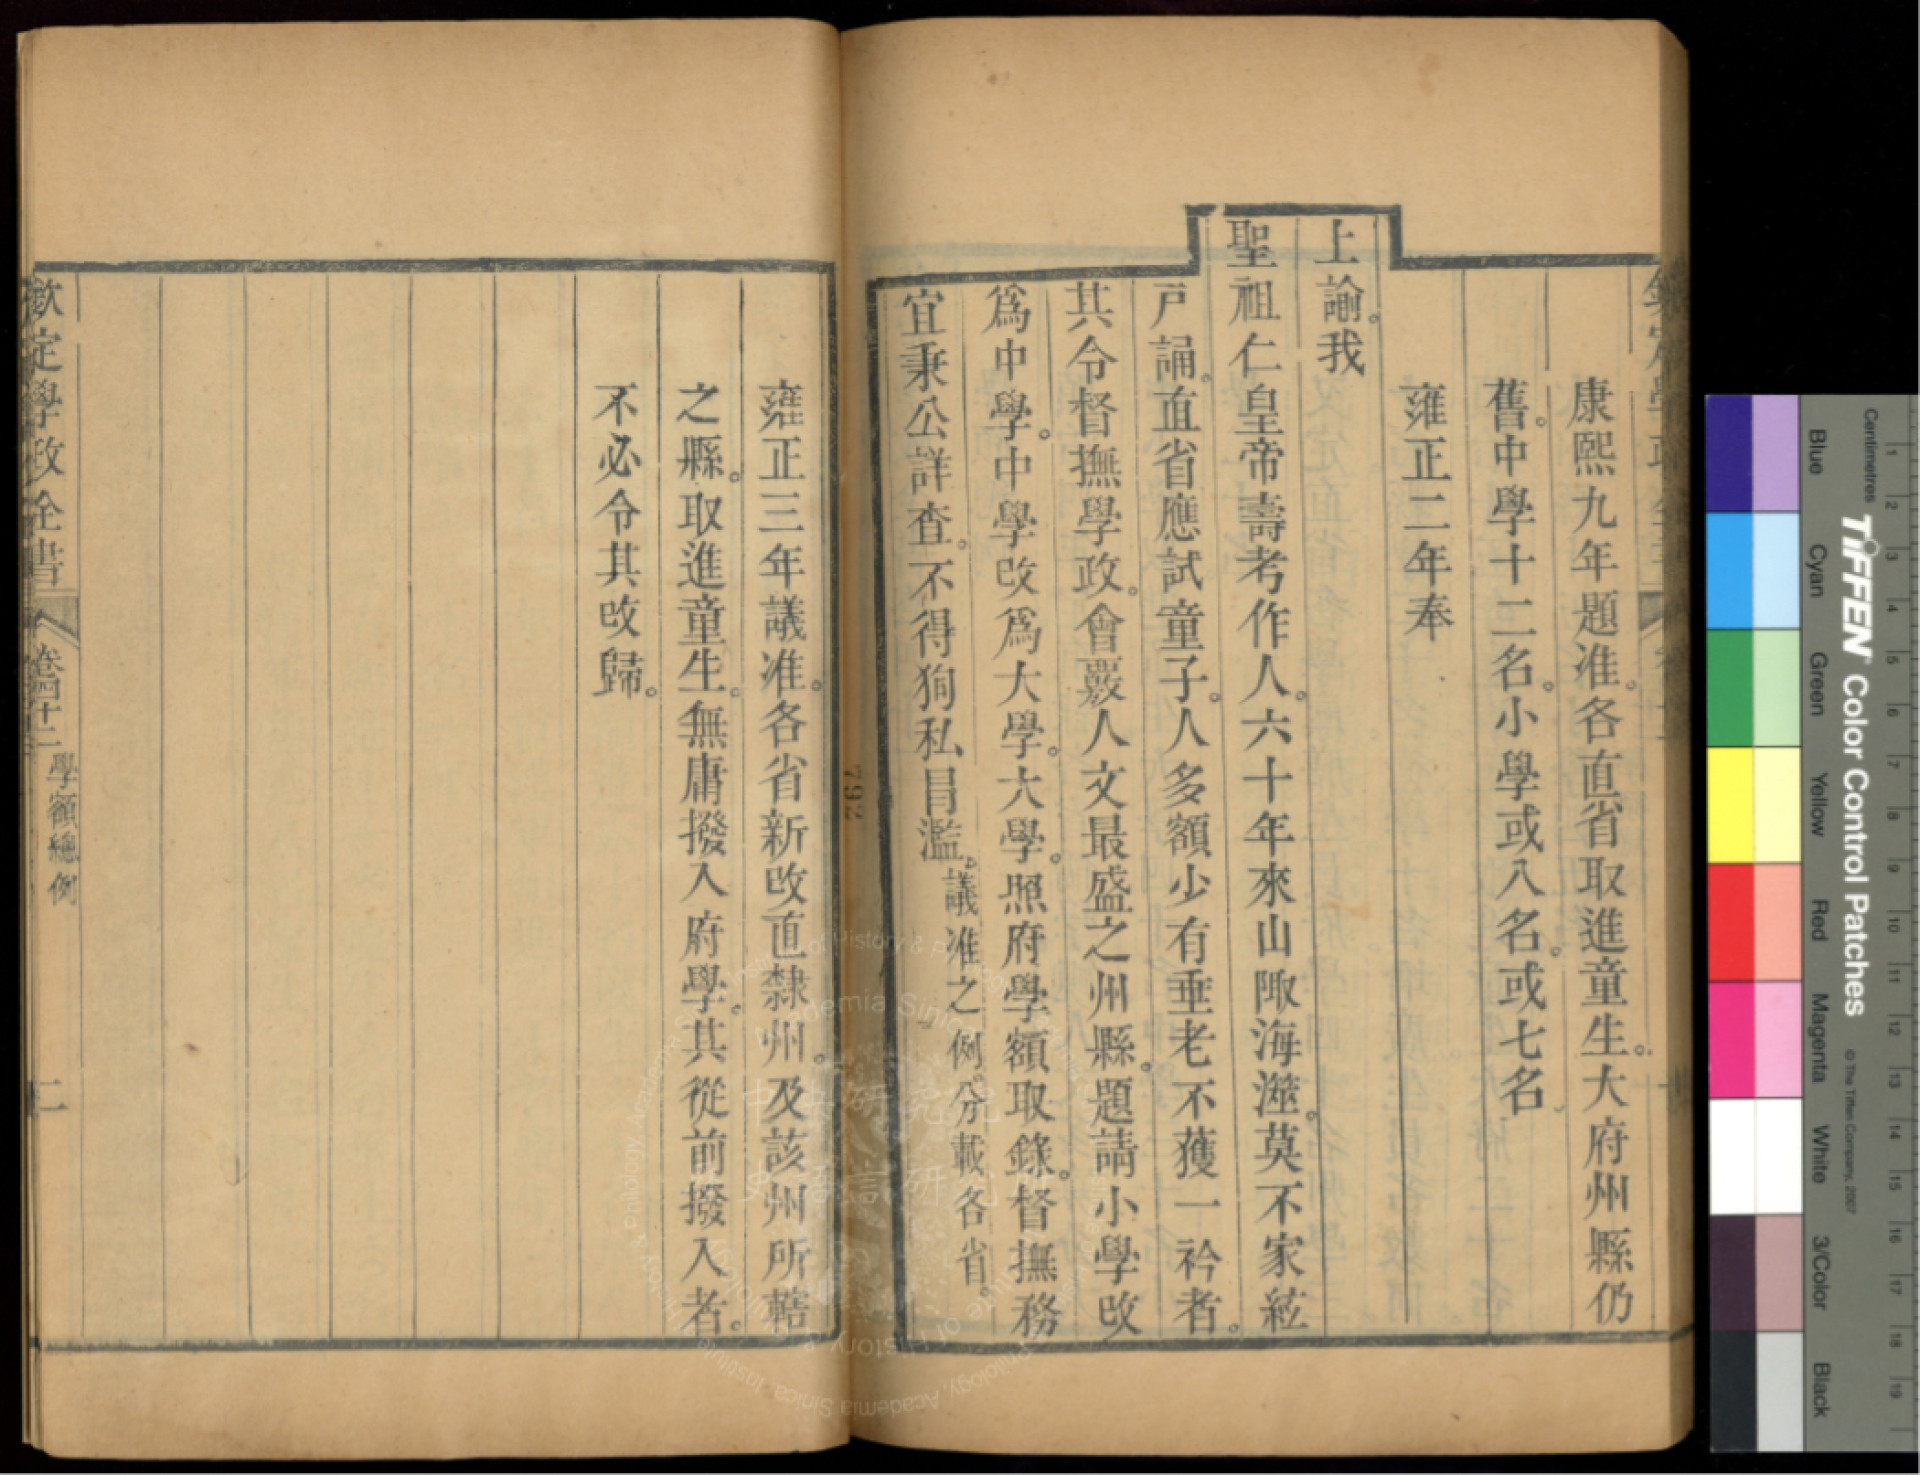 康熙九年題准。各直省取進童生。大府州縣仍
舊。中學十二名。小學或八名。或七名
雍正二年奉
上諭。我
聖祖仁皇帝壽考作人。六十年來山陬海澨。莫不家絃
戶誦。直省應試童子。人多額少有垂老不獲一衿者。
其令督撫學政。會覈人文最盛之州縣。題請小學改
爲中學。中學改爲大學。大學。照府學額取錄。督撫務
宜秉公詳查。不得狥私冒濫。議准之例。分載各省。
雍正三年議准。各省新改直隸州。及該州所轄
之縣。取進童生。無庸撥入府學。其從前撥入者。
不必令其改歸。
欽定學政全書
卷四十二 學額總例
二
792
TIFFEN Color Control Patches
© The Tiffen Company, 2007
Centimetres
1 2 3 4 5 6 7 8 9 10 11 12 13 14 15 16 17 18 19
Blue
Cyan
Green
Yellow
Red
Magenta
White
3/Color
Black